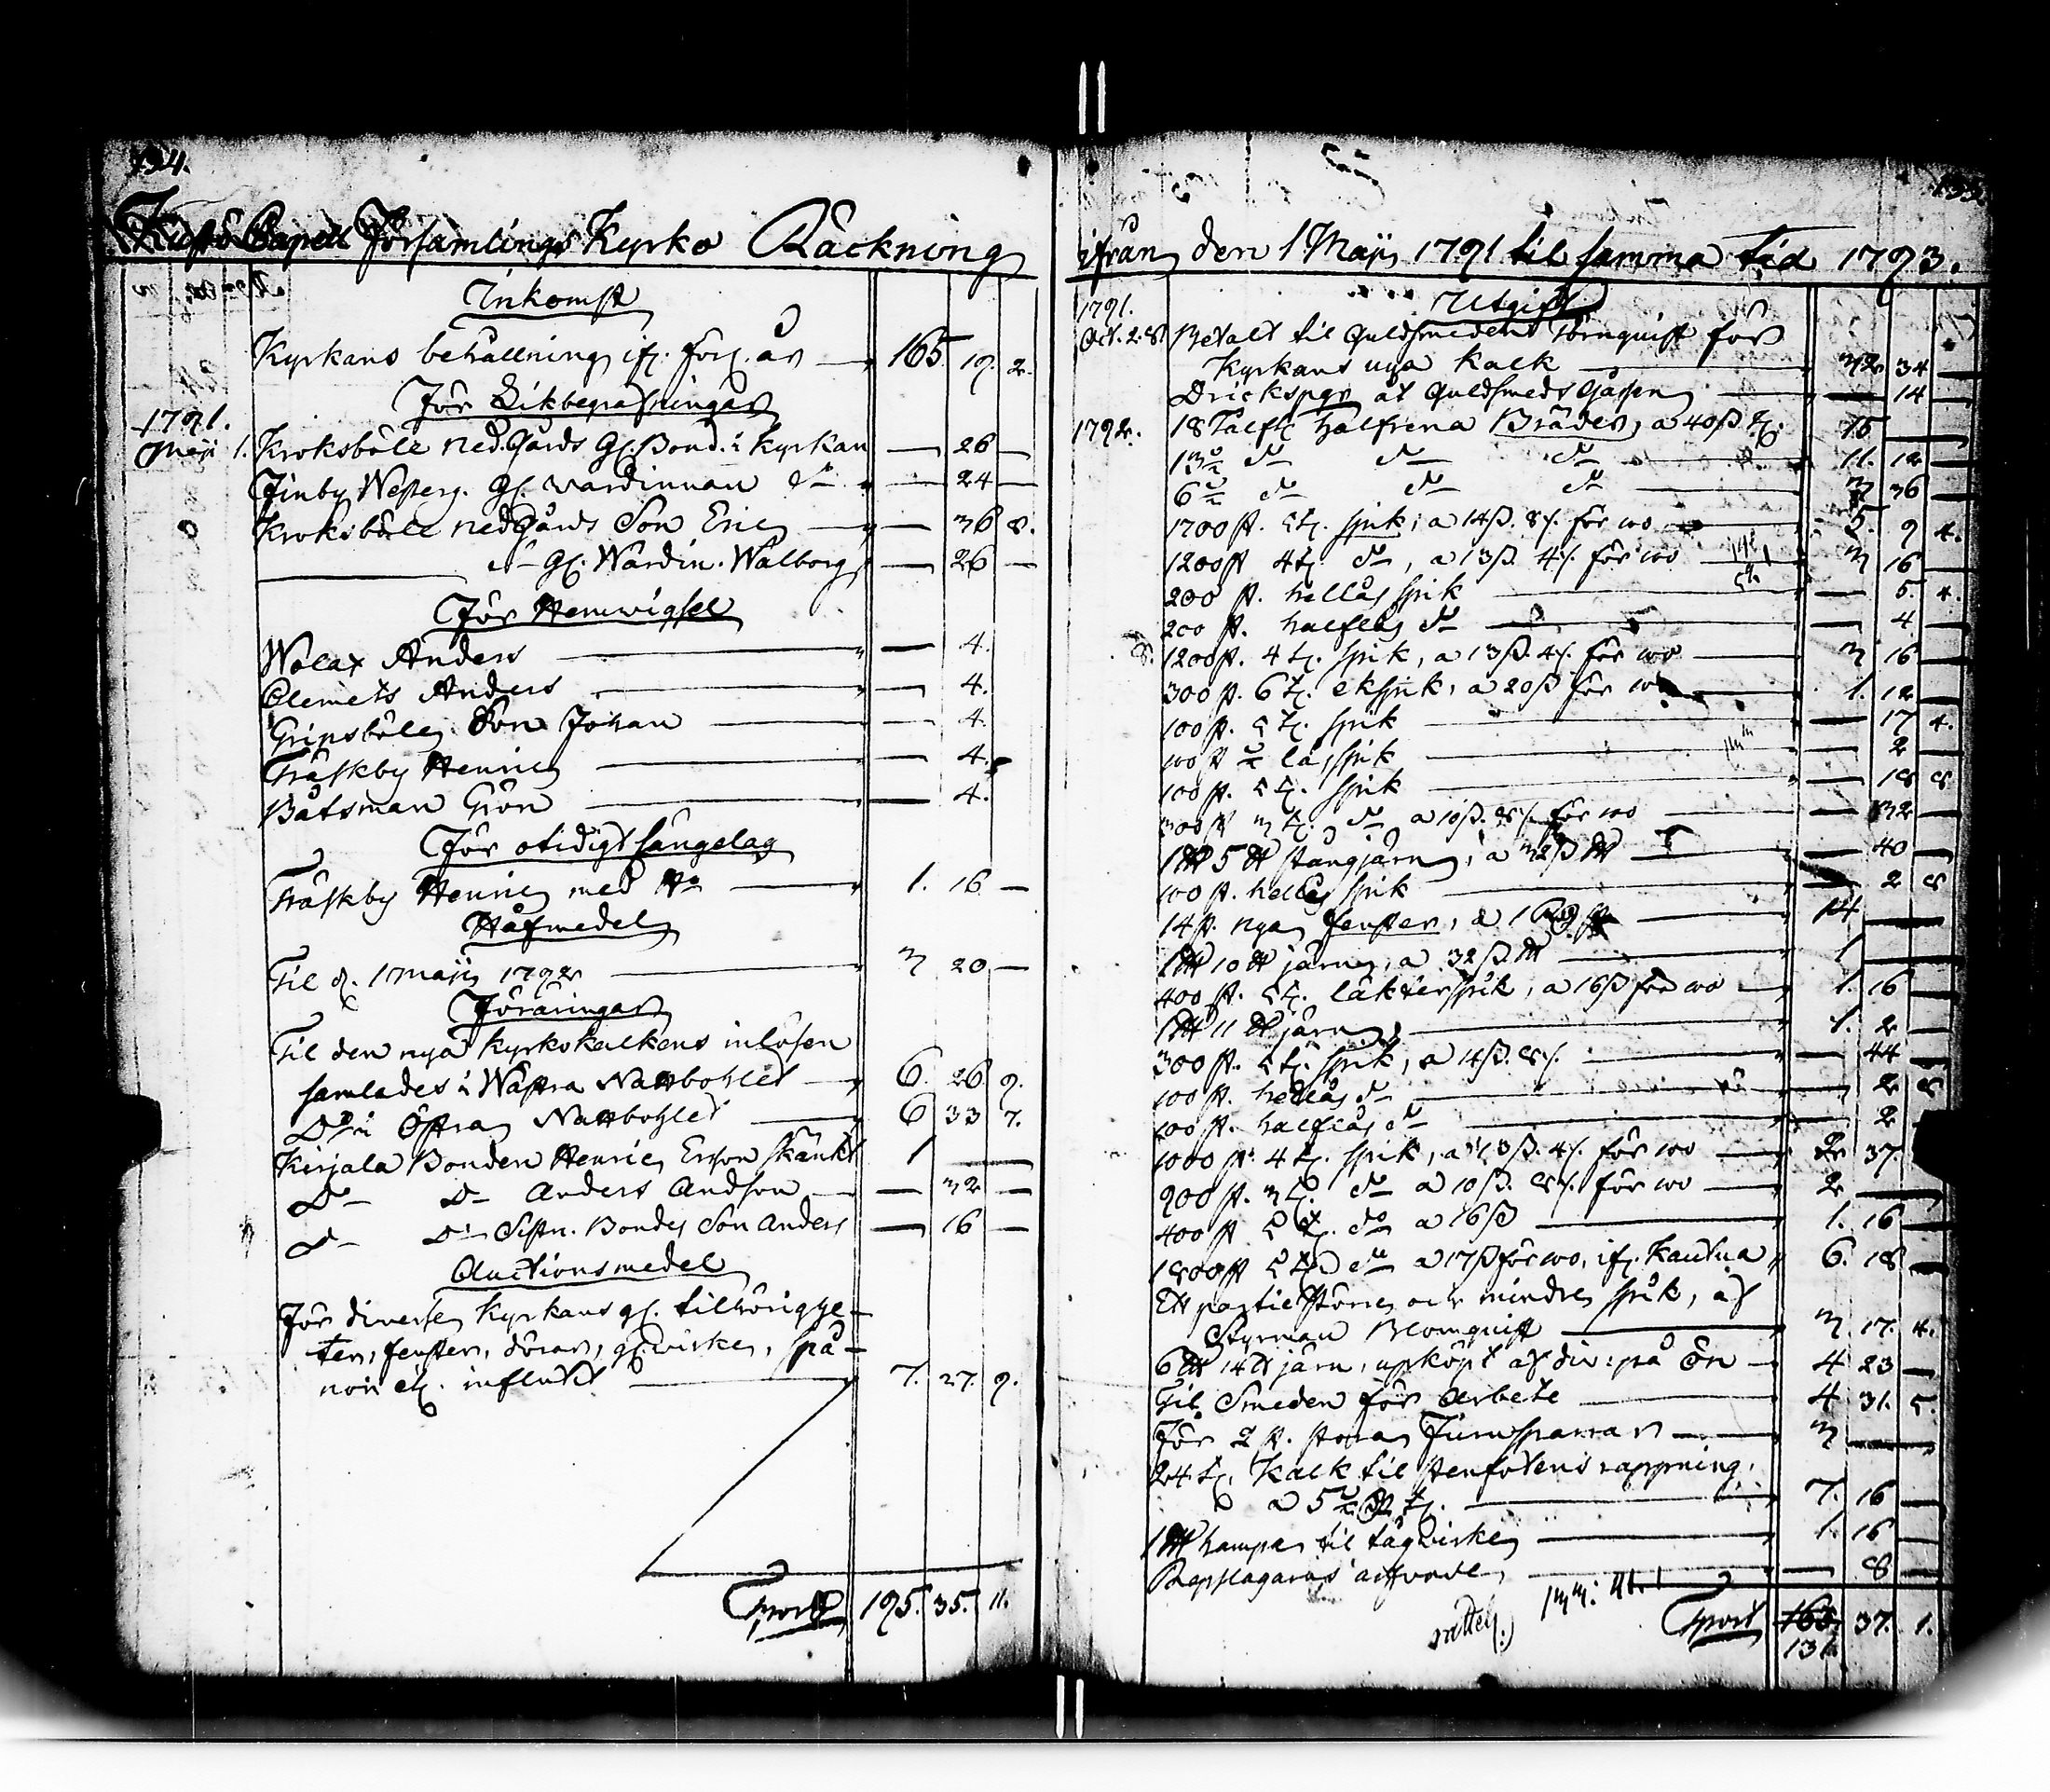 134.
Kustö Capell Församlings Kyrko Räckning
Inkomst
Kyrkans behållning if. förl. år — 165. 19. 2.
För Likbegrafningar
1791.
Maji 1. Kroksböle Ned.Gårds Gl. Bond. i Kyrkan — 26 —
Finby Västerg. Gl. Wärdinnan do — 24 —
Kroksböle NedGårds Son Eric — 36 8.
do Gl. Wärdin. Walborg — 26 —
För Hemwigsel
Wolax Anders — 4.
Clemets Anders — 4.
Gripsböle Son Johan — 4.
Träskby Henric — 4.
Båtsman Grön — 4.
För otidigt sängelag
Träskby Henric med Ho — 1. 16 —
Håfmedel
Til d. 1 Maji 1792 — 3 20 —
Föräringar
Til den nya Kyrkokalkens inlösen
samlades i Wästra Nattbohlet — 6. 26. 9.
Do i Östra Nattbohlet — 6 33 7.
Kirjala Bonden Henric Ersson skänkt 1 —
Do Do Anders Andson — 32 —
Do Do Sistn. Bondes Son Anders — 16 —
Auctionsmedel
För diverse Kyrkans gl. tilhörighe-
ter, fenster, dörar, gl. wirke, spå-
nor etc. influtit — 7. 27. 9.
Transport 195. 35. 11.
135.
ifrån den 1 Maji 1791 til samma tid 1793.
1791. Utgift
Oct. 28. Betalt til Guldsmeden Törnquist för
Kyrkans nya Kalk — 32 34 —
Drickspgr åt Guldsmeds Gässen — 14 —
1792. 18 Tolft. halfrena Bräder, a 40ß t. 15 —
13 do do do — 11. 12 —
6 do do do — 3 36 —
1700 st. 5 t. spik, a 14ß. 8/. för 100 — 5. 9 4.
1200 st 4 t. do, a 13ß. 4/. för 100 — 3 16 —
200 st. hellås spik — 5. 4.
200 st. halflås do — 4 —
1200 st. 4 t. spik, a 13ß. 4/. för 100 — 3 16 —
300 st. 6 t. ekspik, a 20ß för 100 — 1. 12 —
100 st. 5 t. spik — 17 4.
100 st låsspik — 2 —
100 st. 5 t. spik — 18 8.
300 st 3 t. do a 10ß. 8/. för 100 — 32 —
1 LH 5 H stångjärn, a 32ß LH — 40 —
100 st. hellås spik — 2 8
14 st. nya fenster, a — 14 —
1 LH 10 H järn, a 32ß. LH — 1 —
400 st. 5 t. läkterspik, a 16ß för 100 — 1. 16 —
1 LH 11 H järn — 1. 2 —
300 st. 5 t. spik, a 14ß. 8/. — 44 —
100 st. hellås do — 2 8
100 st. halflås do — 2 —
1000 st. 4 t. spik, a 13ß. 4/. för 100 — 2 37.
900 st. 3 t. do a 10ß. 8/. för 100 — 2 —
400 st 5 t. do a 16ß — 1. 16 —
1800 st 5 t. do a 17ß för 100, if. Kautua 6. 18 —
Ett partie större och mindre spik, af
Styrman Blomquist — 3. 17. 4.
6 LH 14 H järn, upköpt af div: på Ön — 4 23 —
Til Smeden för Arbete — 4 31. 5.
För 2 st. stora Furusparrar — 3 —
24 t. Kalk til stenfotens rappning,
a 5 t. — 7. 16 —
1 LH hampa til tågwirke — 1. 16 —
Repslagarns arfvode — 8 —
Transport 163. 37. 1.
131.